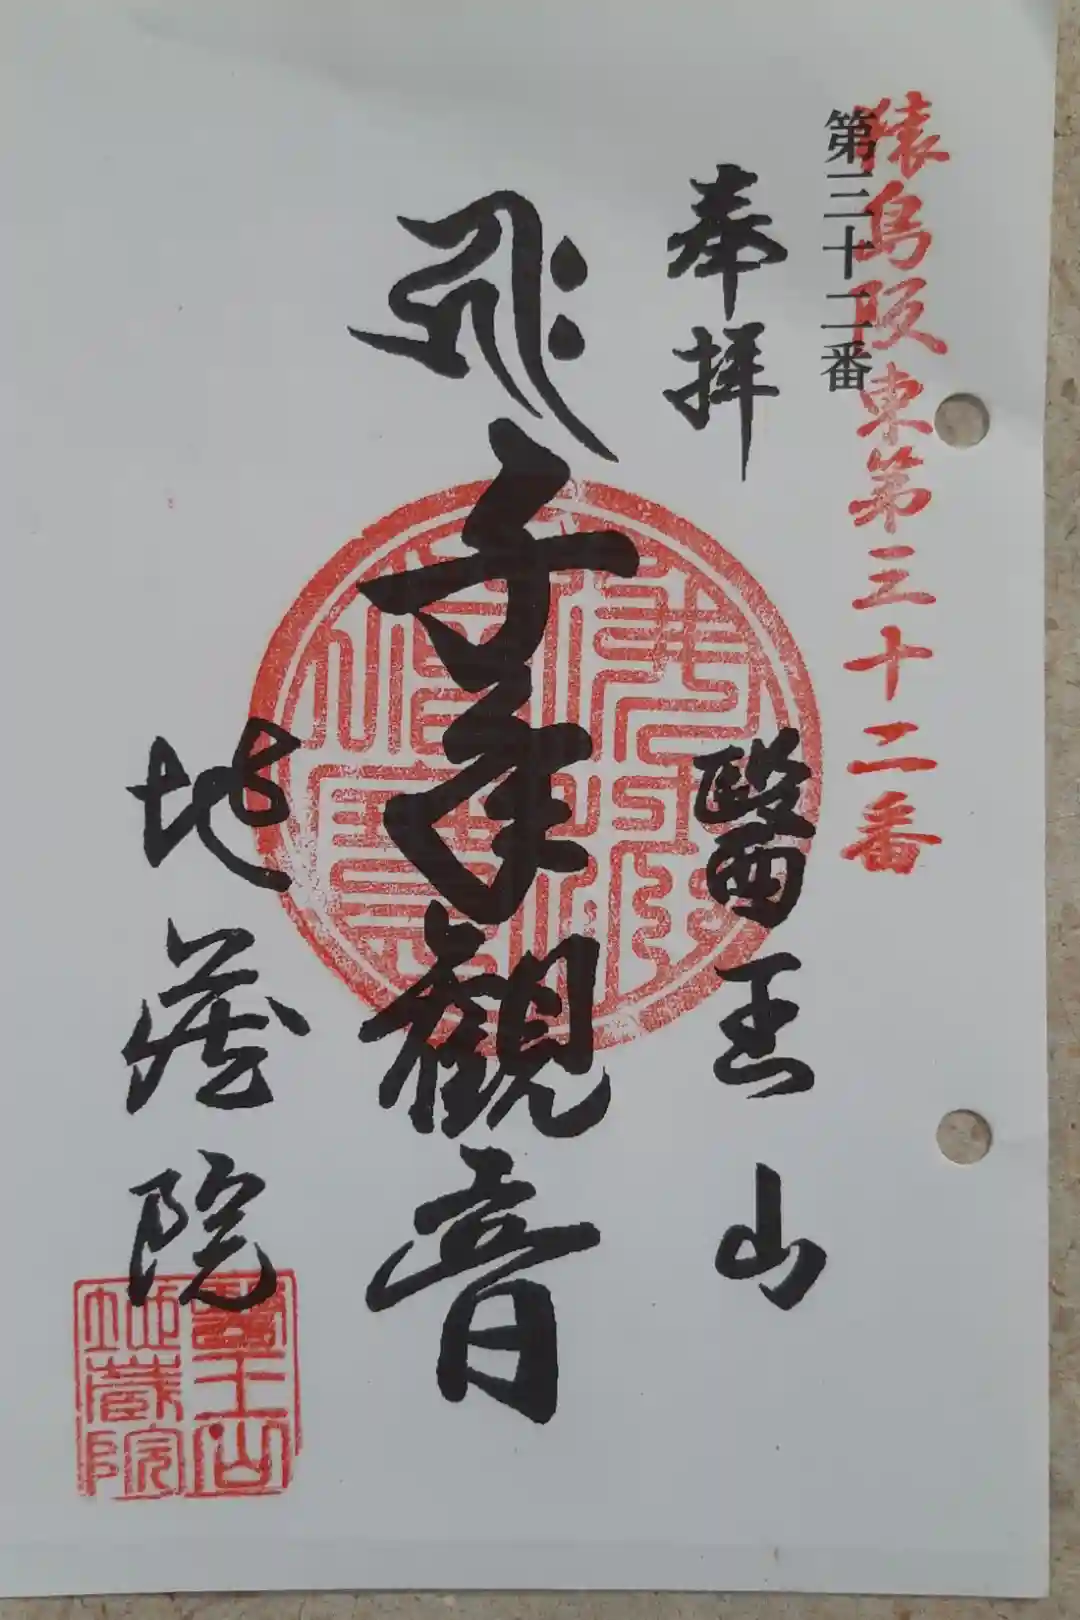 猿島阪東第三十二番
第三十二番
奉拝
醫王山
千手観音
地蔵院
醫王山
地蔵院